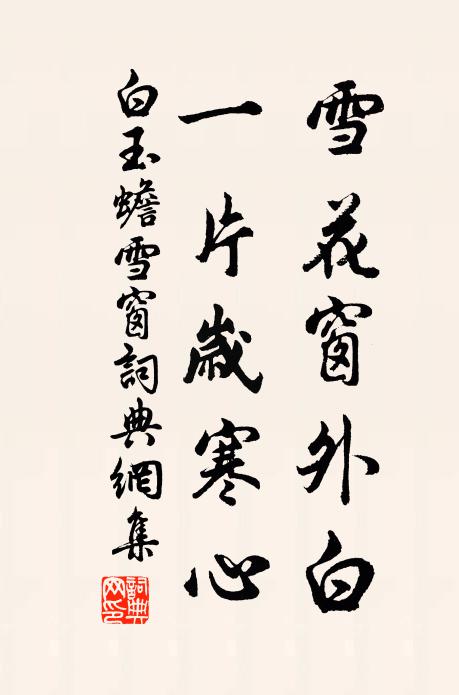 雪花窗外白
一片歲寒心
白玉蟾雪窗詞典網集
詞典網印